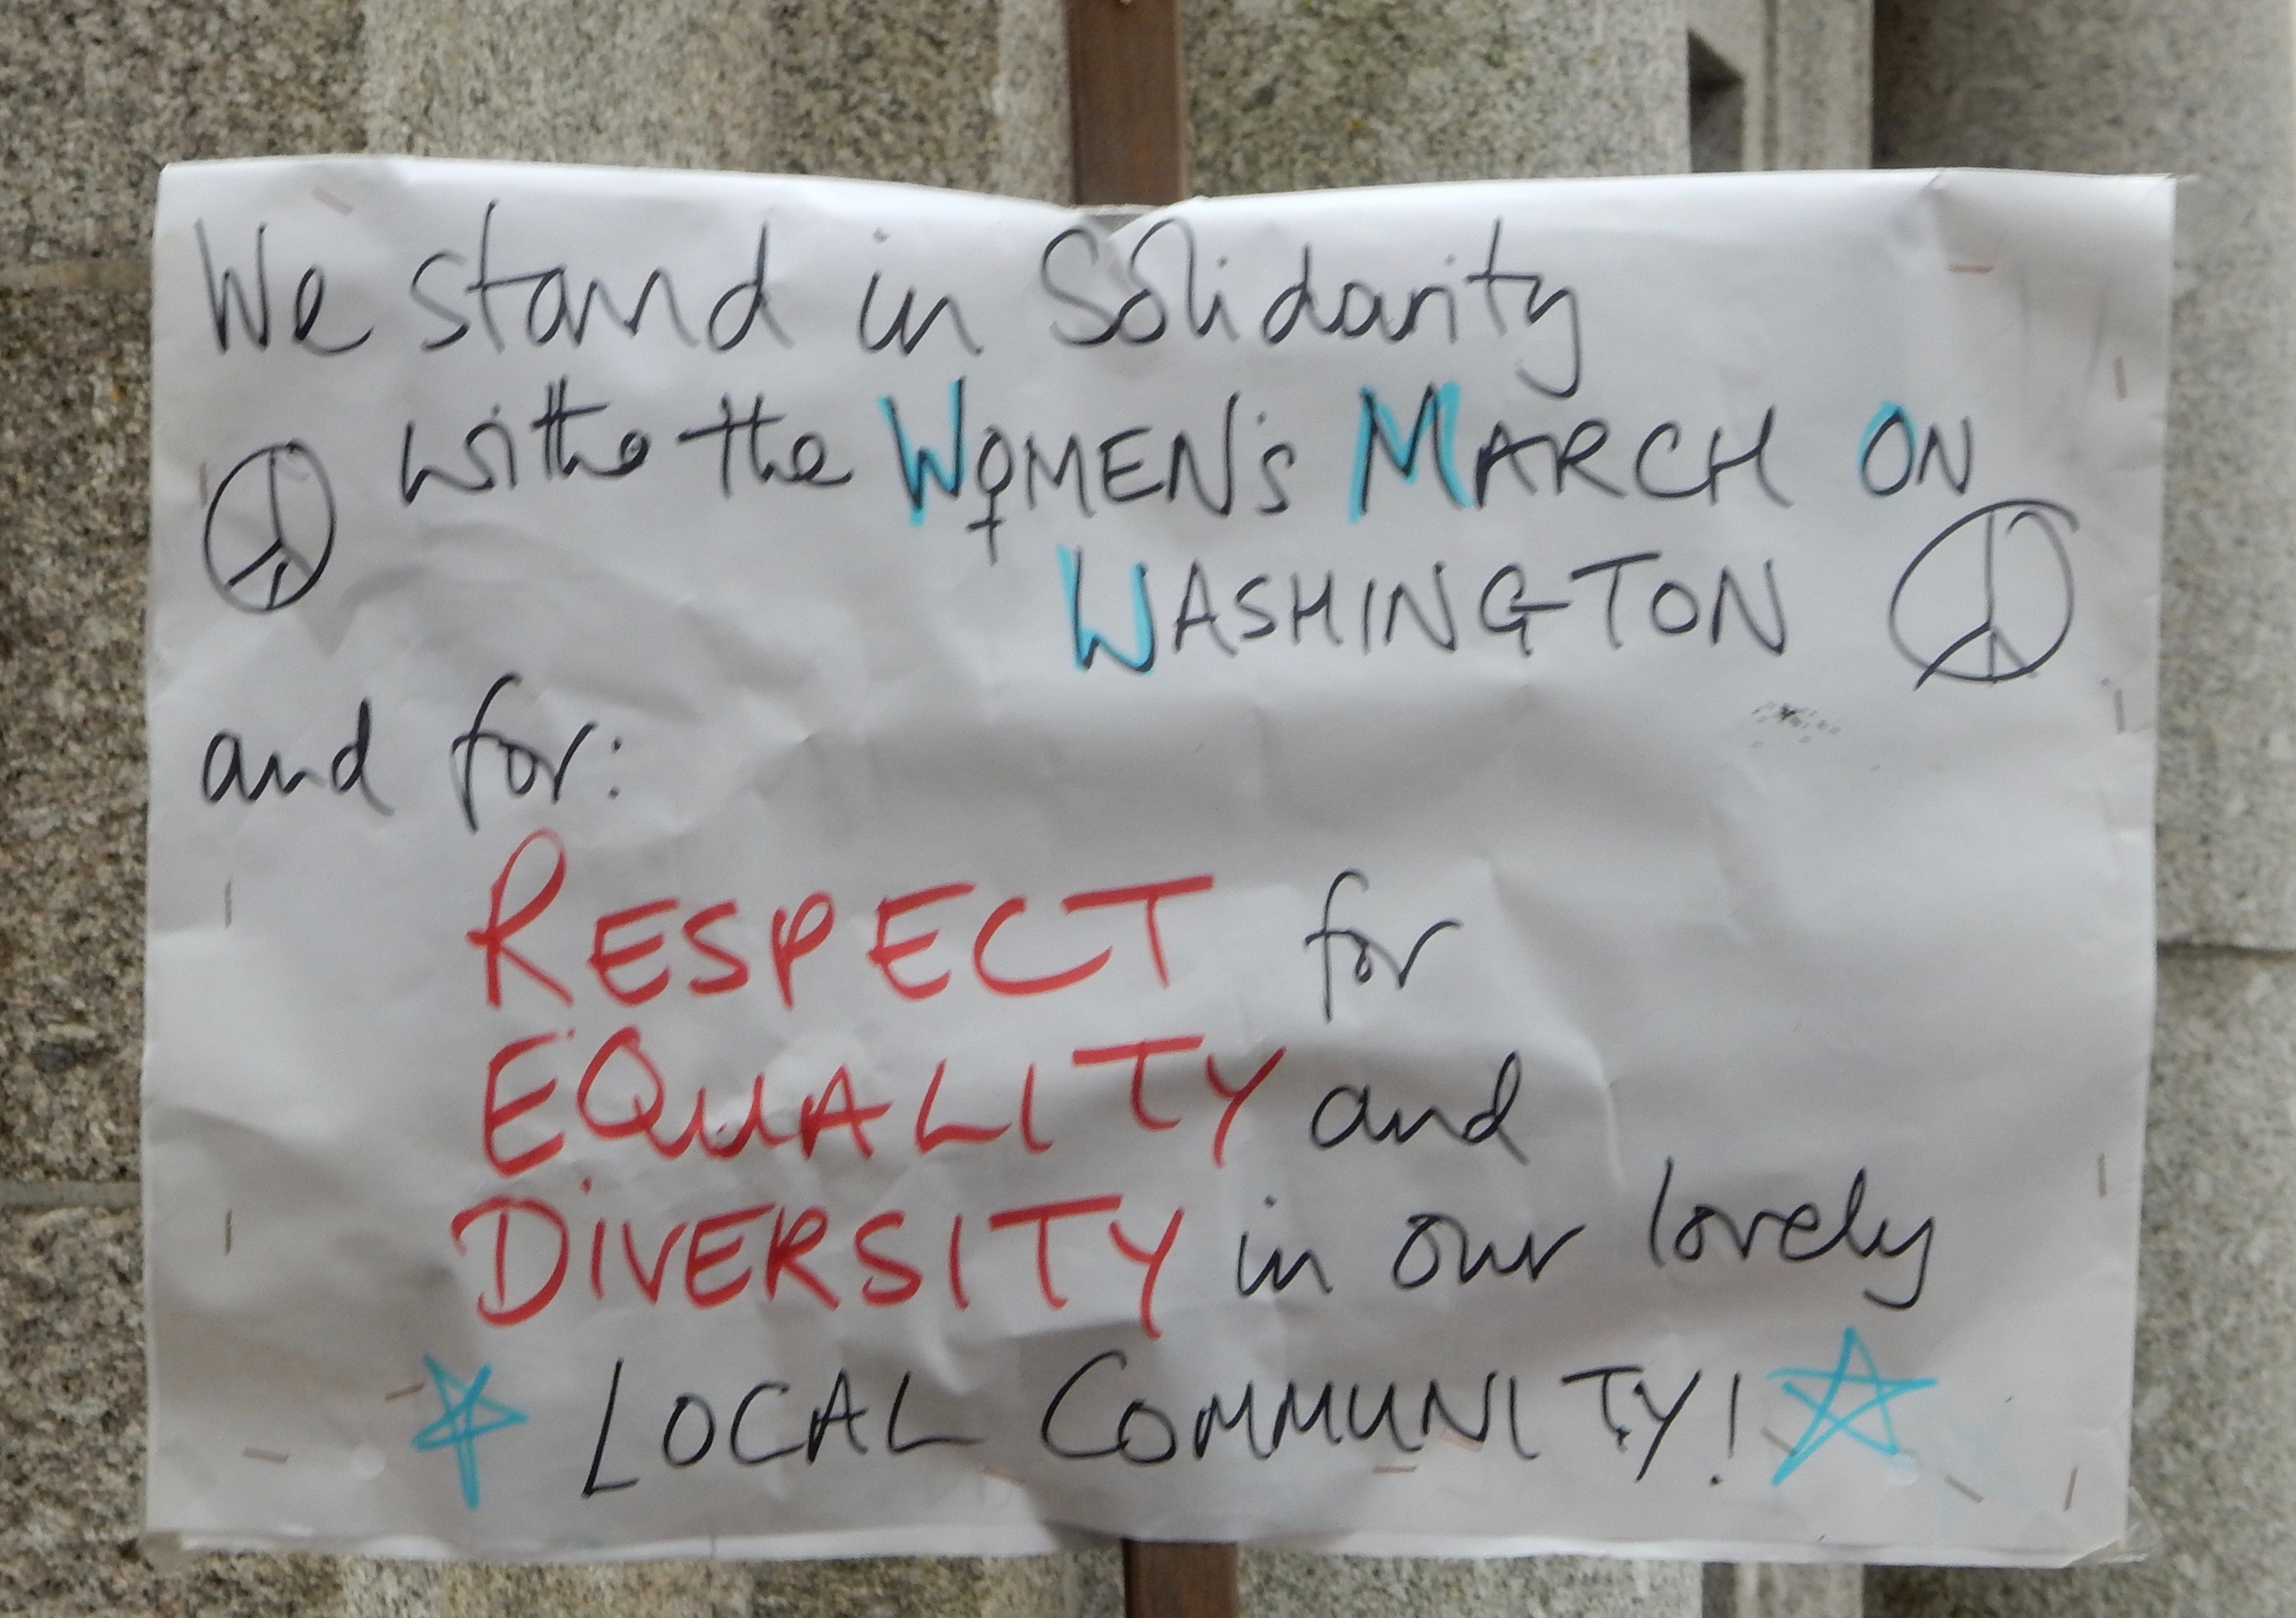 We stand in Solidarity
withe the WOMEN's MARCH ON
WASHINGTON
and for:
RESPECT for
EQUALITY and
DiVERSITY in our lovely
LOCAL COMMUNITY!